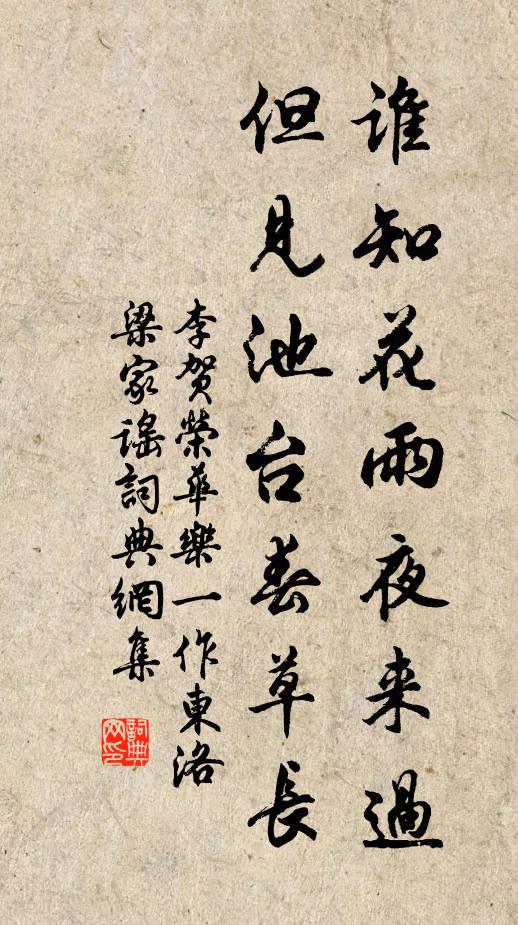 谁知花雨夜来過
但見池台春草長
李賀榮華樂一作東洛
梁家謠詞典網集
詞典网印